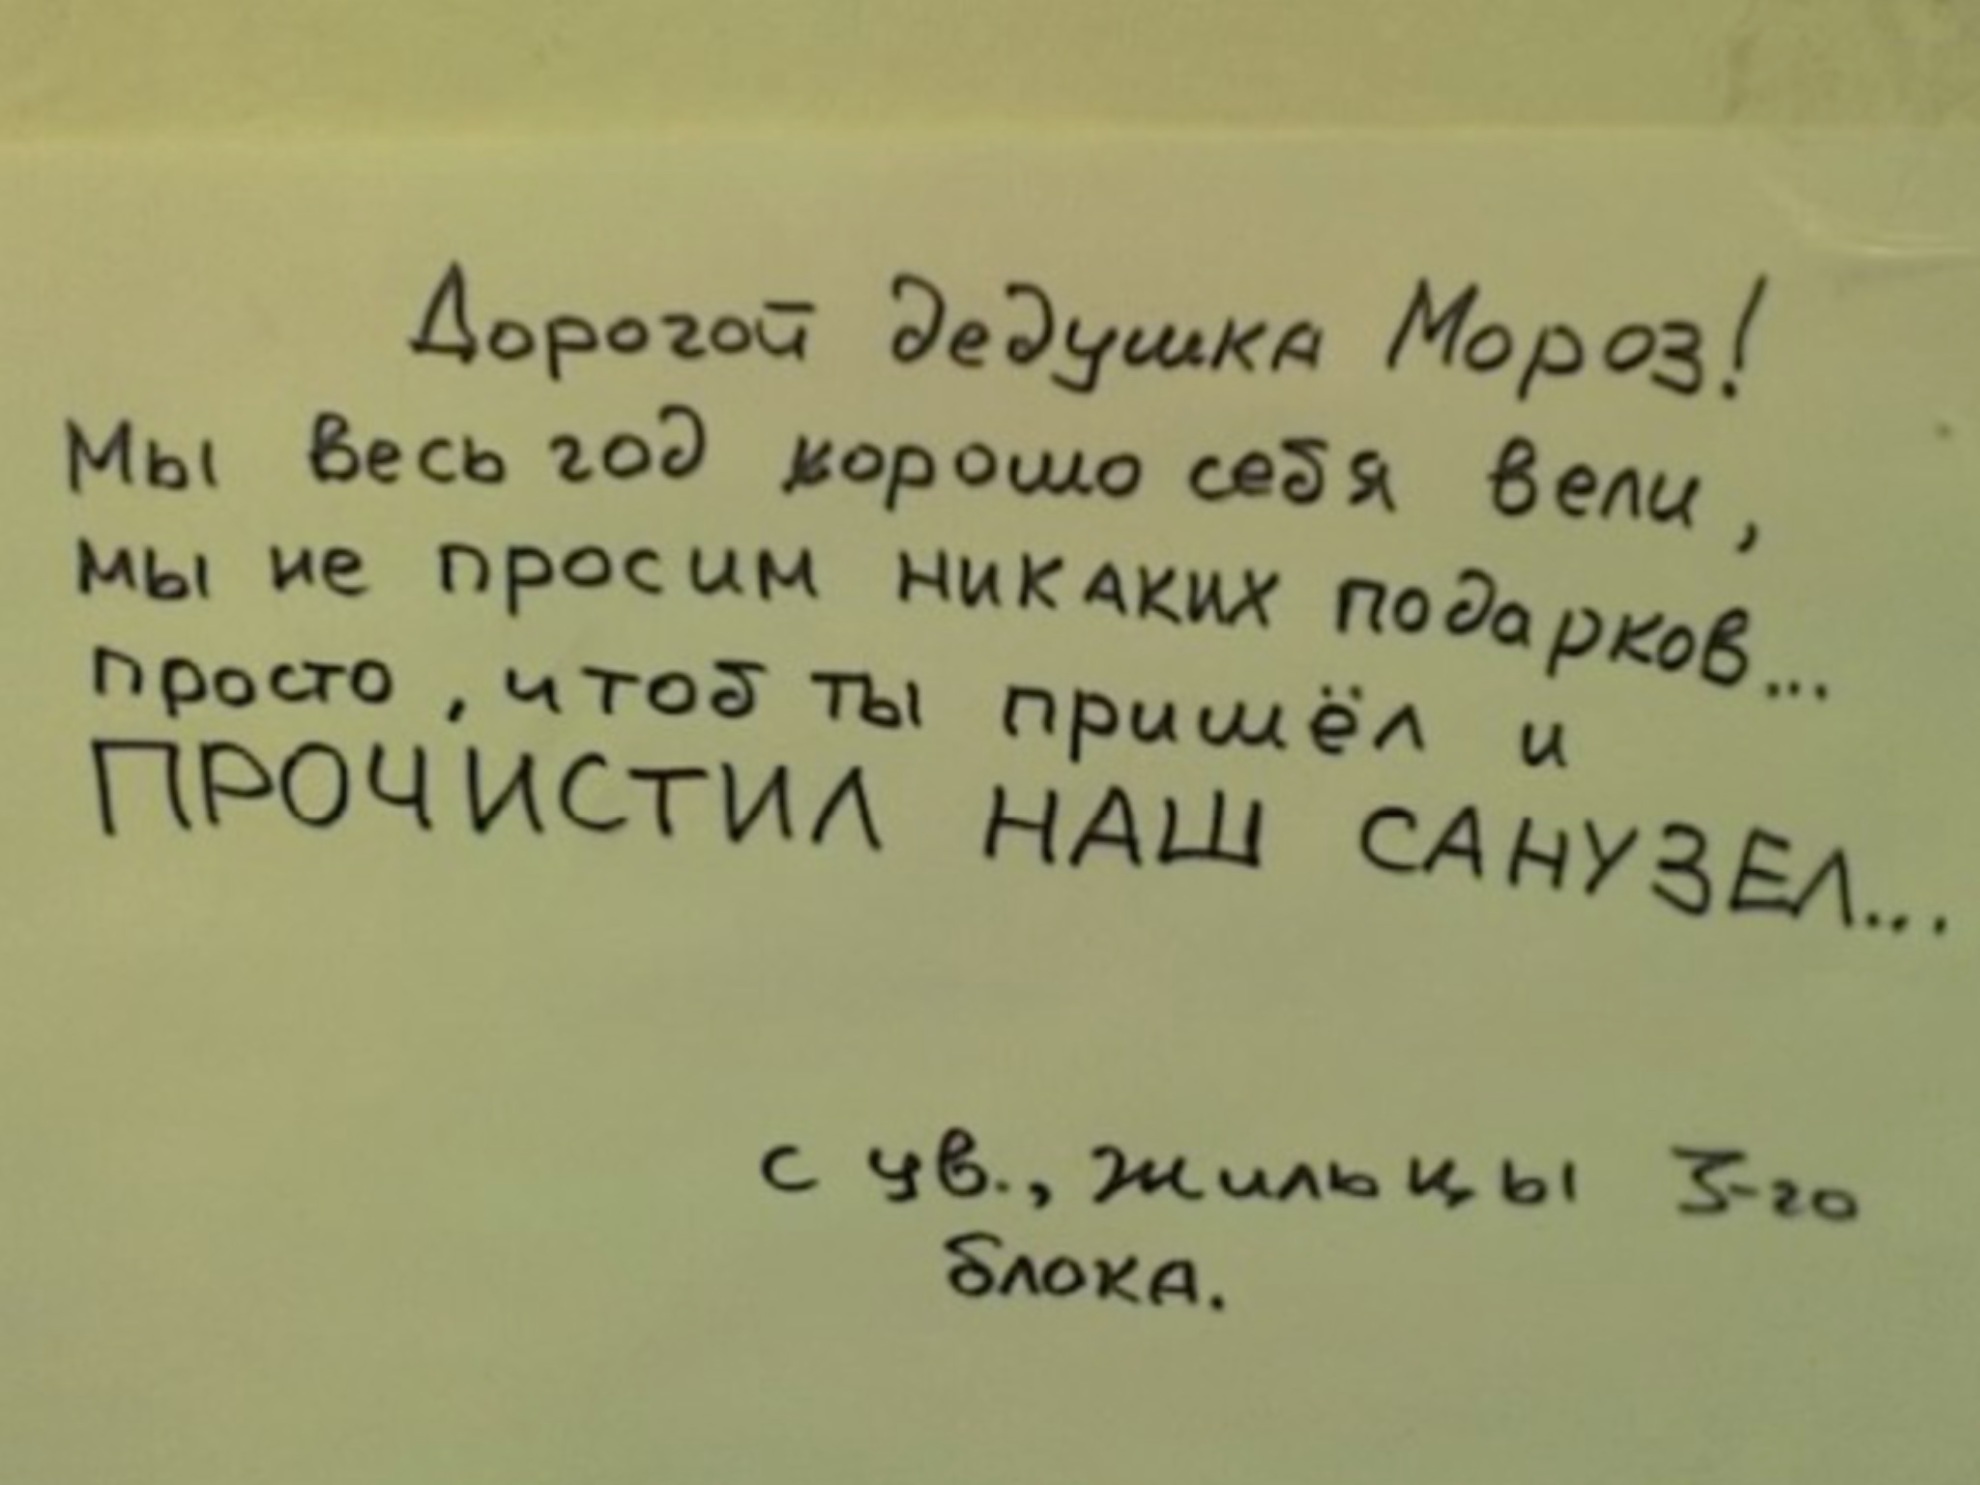 Дорогой дедушка Мороз!
Мы весь год хорошо себя вели,
мы не просим никаких подарков...
просто, чтоб ты пришёл и
ПРОЧИСТИЛ НАШ САНУЗЕЛ...
с ув., жильцы 3-го
блока.